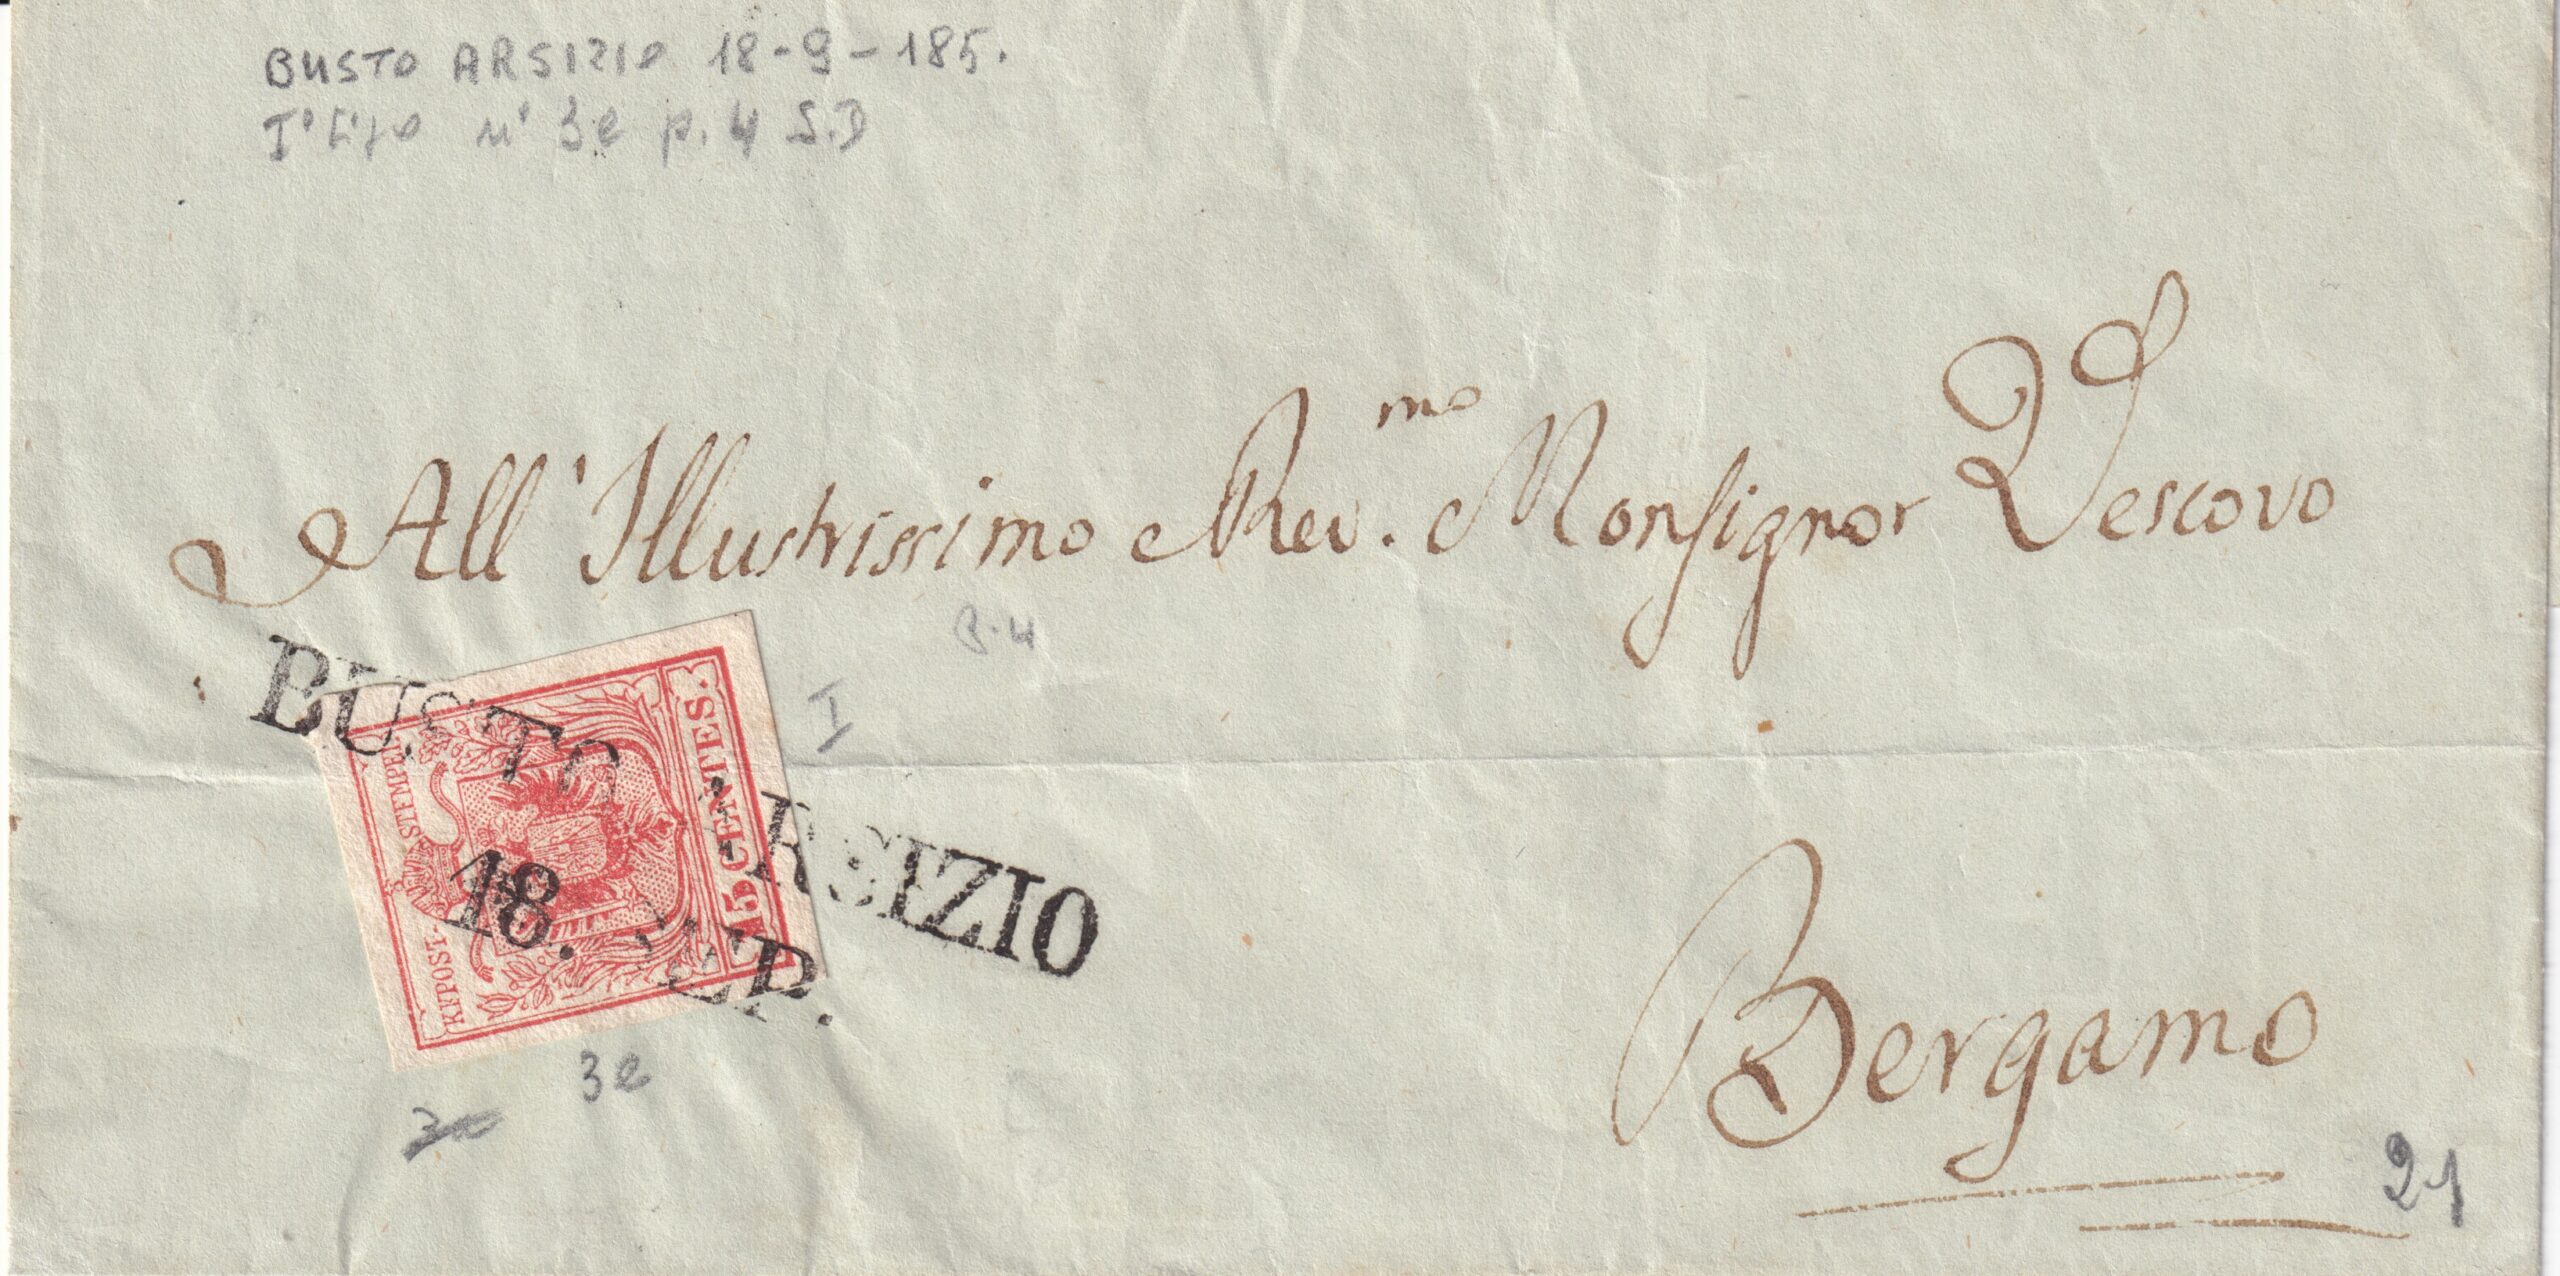 BUSTO ARSIZIO 18-9-185.
I° tipo n° 3e p. 4 S.D
All' Illustrissimo Rev.mo Monsignor Vescovo
P.4
BUSTO ARSIZIO
18. SEP.
I
KKPOST-STEMPEL
15 CENTES.
3e
Bergamo
21